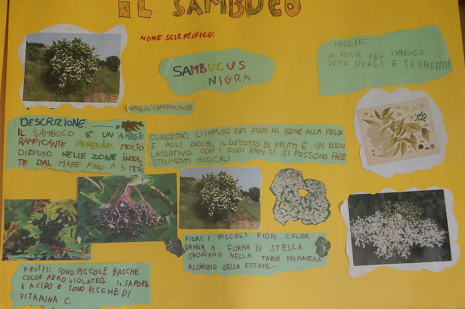 IL SAMBUCO
NOME SCIENTIFICO:
SAMBUCUS
NIGRA
FOGLIE:
LE FOGLIE DEL SAMBUCO
SONO OVALI E SEGHETTATE
FAMIGLIA:
DESCRIZIONE
IL SAMBUCO E' UN
RAMPICANTE PERENNE MOLTO
DIFFUSO NELLE ZONE INCOL
TE DAL MARE FINO A
CURIOSITÀ: L'INFUSO DEI FIORI FA BENE ALLA PELLE
E AGLI OCCHI, IL DECOTTO DI FRUTTI È UN BUON
LASSATIVO. CON I SUOI RAMI CI SI POSSONO FARE
STRUMENTI MUSICALI
FIORI: I PICCOLI FIORI COLOR
PANNA A FORMA DI STELLA
SBOCCIANO NELLA TARDA PRIMAVERA
ALL'INIZIO DELLA ESTATE
FRUTTI: SONO PICCOLE BACCHE
COLOR NERO VIOLACEO, IL SAPORE
È ACIDO E SONO RICCHE DI
VITAMINA C.